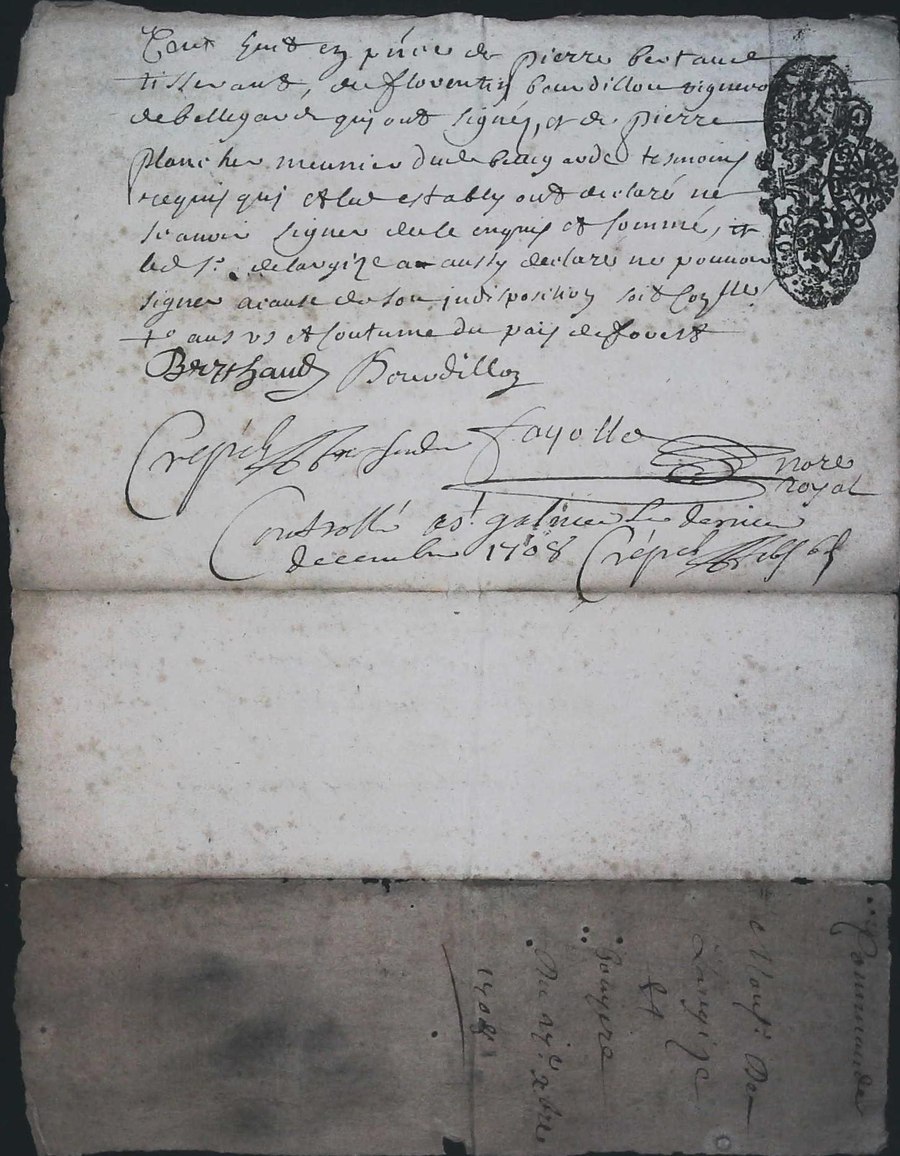 pierre bertaud
tisserand, de florentin bourdillon vigneron
de bellegarde qui ont signé, et de pierre
plancher meunier dud bellegarde tesmoins
requis qui et led estably ont declaré ne
scavoir signer de ce enquis et sommé, et
led sr. delavgize a aussy declaré ne pouvoir
signer a cause de son indisposition soit
aus us et coutume du pais de forest
Berthaud Bourdillon
Crépet fayolle
nore
royal
Controllé a st. galmier le dernier
decembre 1708 Crépet
Commande
Monsr. De
Lavgize
et
Du xbre
1708